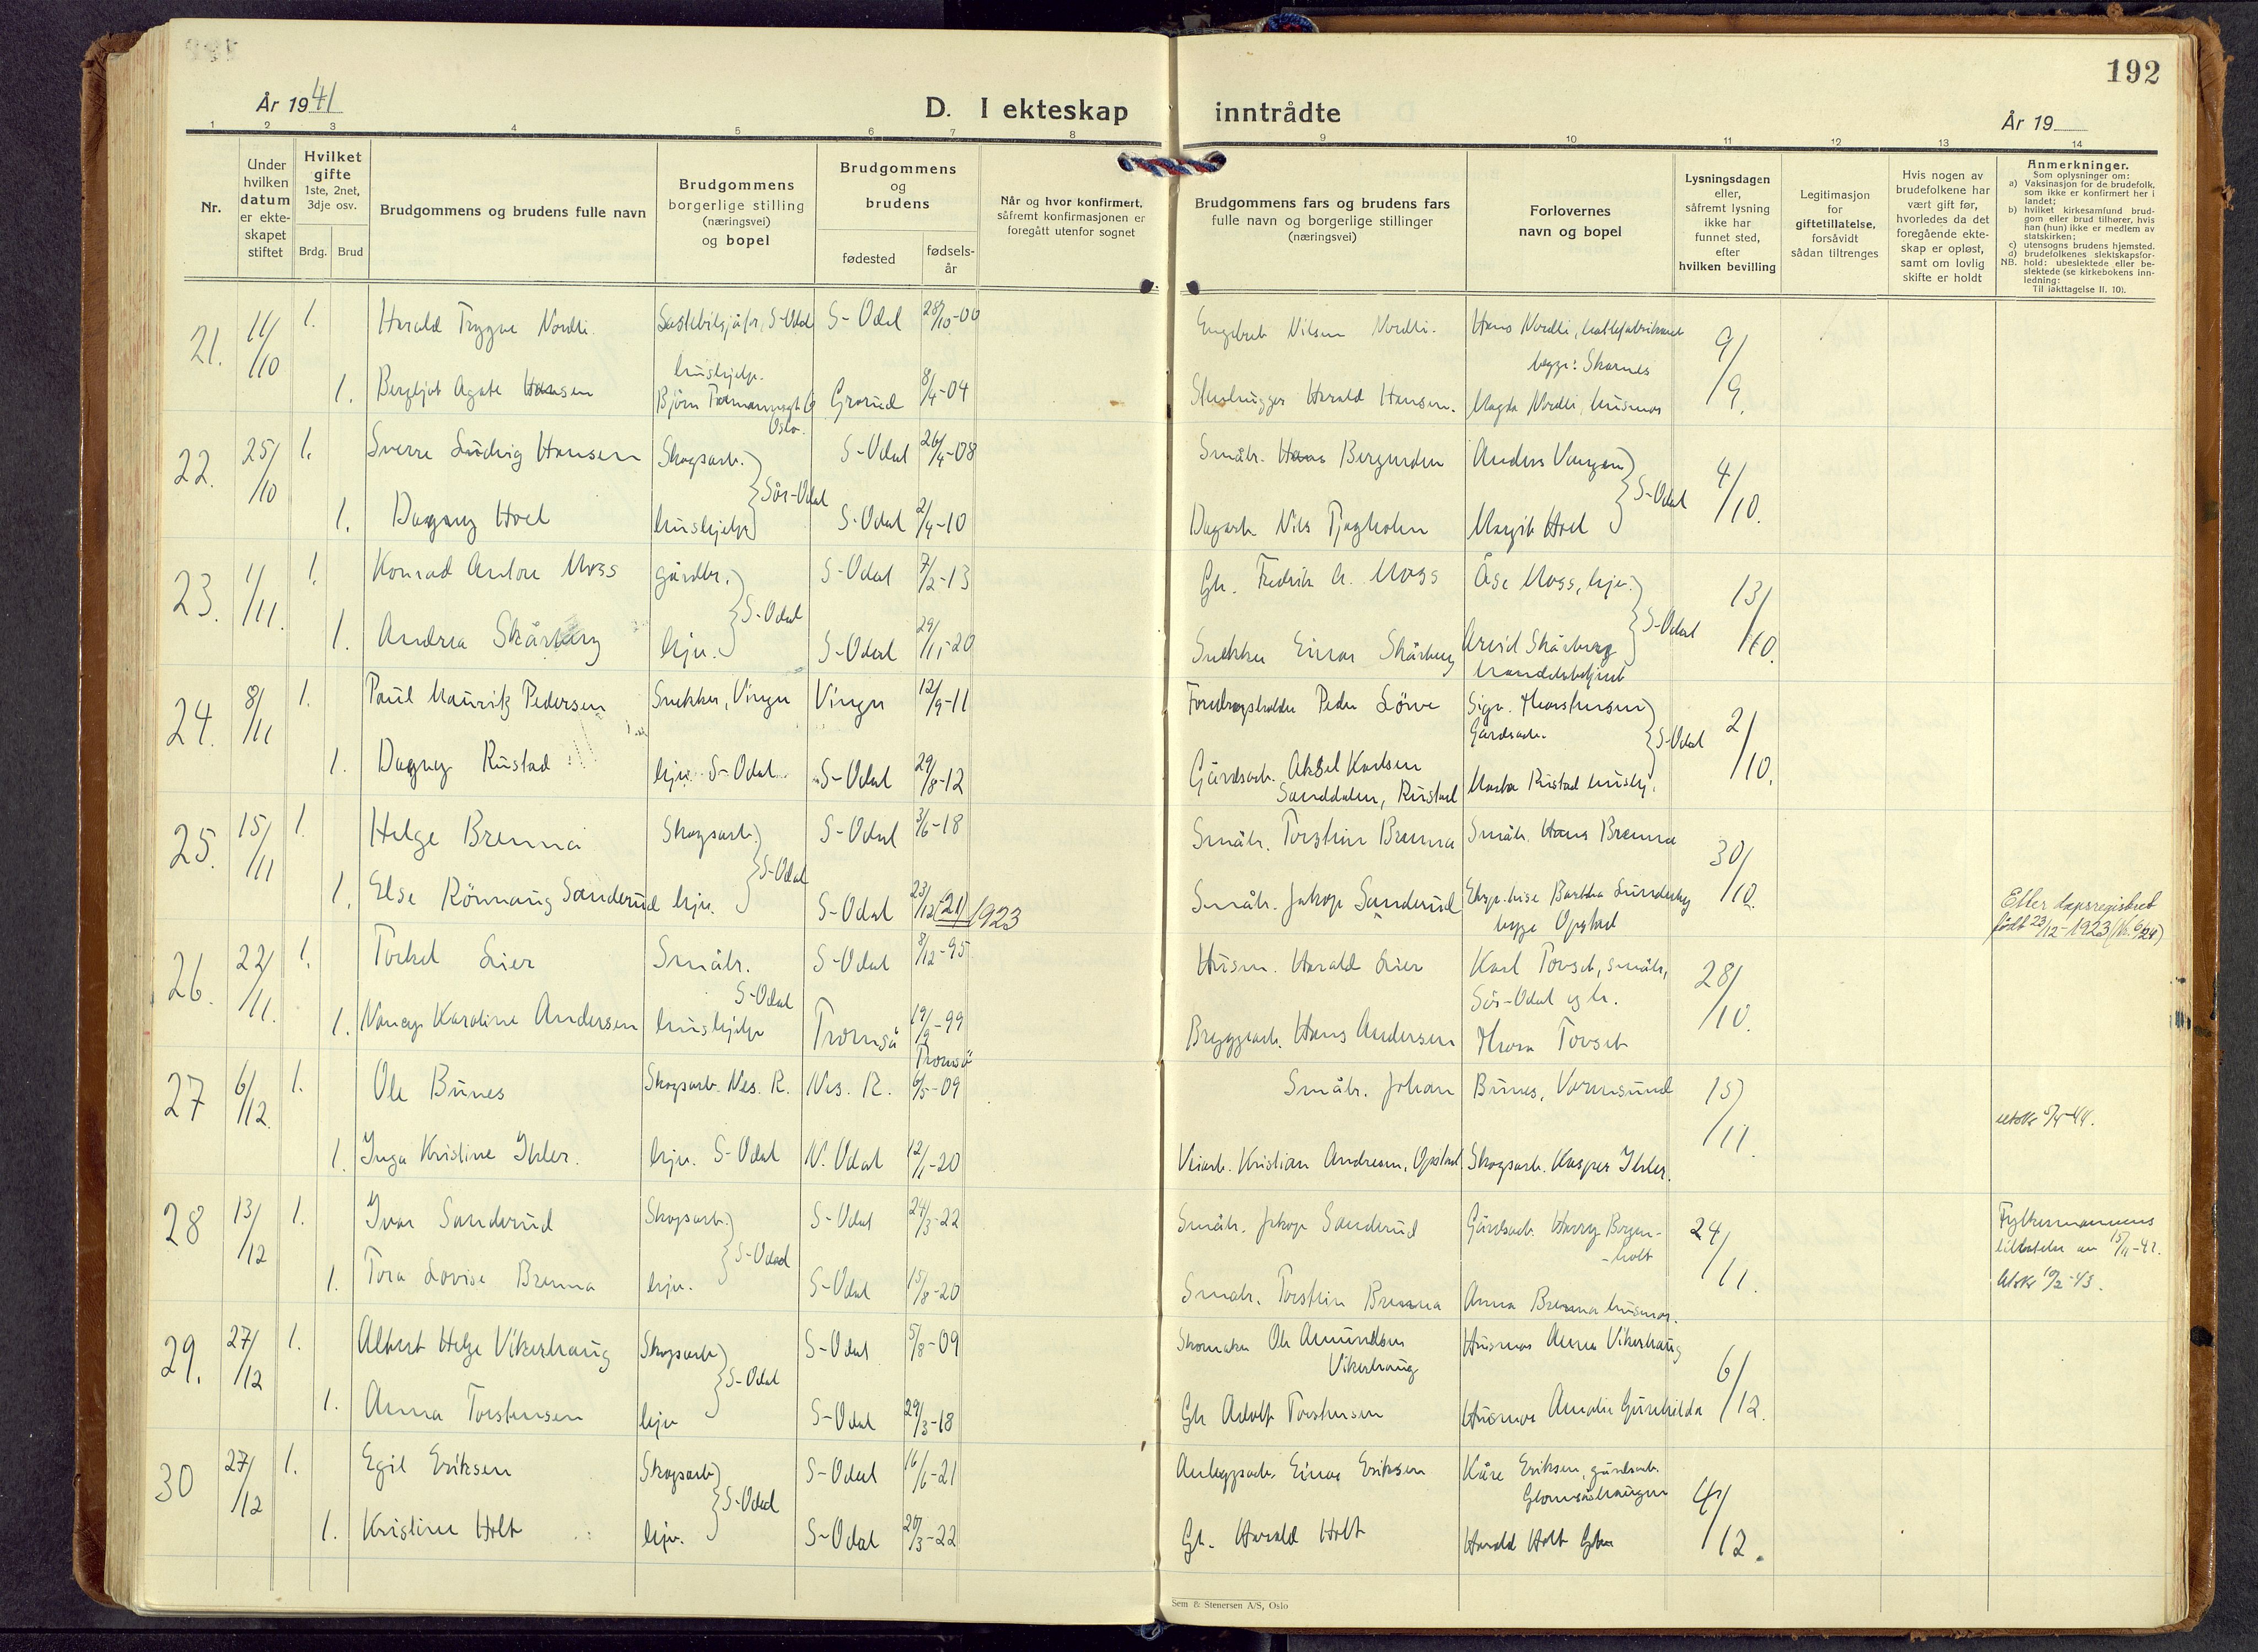 192
År 1941
D. I ekteskap inntrådte
År 19
1 2 3 4 5 6 7 8 9 10 11 12 13 14
Nr.
Under hvilken datum er ekteskapet stiftet
Hvilket gifte
1ste, 2net, 3dje osv.
Brdg. Brud
Brudgommens og brudens fulle navn
Brudgommens borgerlige stilling (næringsvei) og bopel
Brudgommens og brudens
fødested
fødsels-år
Når og hvor konfirmert,
såfremt konfirmasjonen er
foregått utenfor sognet
Brudgommens fars og brudens fars
fulle navn og borgerlige stillinger
(næringsvei)
Forlovernes
navn og bopel
Lysningsdagen
eller,
såfremt lysning
ikke har
funnet sted,
efter
hvilken bevilling
Legitimasjon
for
giftetillatelse,
forsåvidt
sådan tiltrenges
Hvis nogen av
brudefolkene har
vært gift før,
hvorledes da det
foregående ekte-
skap er opløst,
samt om lovlig
skifte er holdt
Anmerkninger.
Som oplysninger om:
a) Vaksinasjon for de brudefolk,
som ikke er konfirmert her i
landet;
b) hvilket kirkesamfund brud-
gom eller brud tilhører, hvis
han (hun) ikke er medlem av
statskirken;
c) utensogns brudens hjemsted.
d) brudefolkenes slekskapsfor-
NB. hold: ubeslektede eller be-
slektede (se kirkebokens inn-
ledning:
Til iakttagelse II. 10).
21. 11/10 1. Harald Trygve Nordli. S-Odal S-Odal 28/10-00 Engebret Nilsen Nordli. Hans Nordli, 9/9.
begge: Skarnes
1. Bergljot Agate Hansen hushjelp. Oslo. Grorud 8/4-04 Harald Hansen. Magda Nordli, husmor
22. 25/10 1. Sverre Ludvig Hansen Skogsarb. S-Odal 26/4-08 Småbr. Hans Bergerden Anders Vangen 4/10.
Sør-Odal S-Odal
1. Dagny Hoel hushjelp S-Odal 2/4-10 Dagarb. Nils Margit Hoel
23. 1/11. 1. Konrad Anton Moss gårdbr. S-Odal 7/2-13 Gb. Fredrik A. Moss Åse Moss, hjv. 13/10.
S-Odal S-Odal
1. Andrea Skårberg hjv. S-Odal 29/11-20 Snekker Einar Skårberg Arvid Skårberg
handelsbetjent
24. 8/11 1. Paul Mauritz Pedersen Snekker, Vinger Vinger 12/9-11 Foredragsholder Peder Löwe Sigv. Thorstensen 2/10.
Gårdsarb. S-Odal
1. Dagny Rustad hjv. S-Odal S-Odal 29/8-12 Gårdsarb. Aksel Karlsen
Sanddalen, Rustad Marta Rustad hushj.
25. 15/11 1. Helge Brenna Skogsarb. S-Odal 3/6-18 Småbr. Torstein Brenna Småbr. Hans Brenna 30/10.
S-Odal
1. Else Rönnaug Sanderud hjv. S-Odal 23/12 (21) 1923 Småbr. Jakop Sanderud Bartha Sundsberg
begge Opstad
Etter dåpsregistret
født 23/12-1923 (Nr. 6/24)
26. 22/11. 1. Torkel Lier Småbr. S-Odal 8/12-95 Husm. Harald Lier Karl Tovset, småbr, 28/10.
S-Odal Sør-Odal og h.
1. Nancy Karoline Andersen hushjelp Tromsø 19/9-99 Bryggearb. Hans Andersen Thora Tovset
Tromsø
27 6/12. 1. Ole Bunes Skogsarb. Nes. R. Nes. R. 6/5-09 Småbr. Johan Bunes, Vormsund 15/11.
utskr 5/4-44.
1. Inga Kristine Ihler. hjv. S-Odal N. Odal 12/1-20 Veiarb. Kristian Andresen, Opstad Skogsarb. Kasper Ihler.
28 13/12 1. Ivar Sanderud Skogsarb. S-Odal 24/3-22 Småbr. Jakop Sanderud Gårdsarb. Harry Borgen-
-holt 24/11.
S-Odal
Fylkesmannens
tillatelse av 15/11-41.
Utskr 10/2-43.
1. Tora Lovise Brenna hjv. S-Odal 15/8-20 Småbr. Torstein Brenna Anna Brenna husmor.
29. 27/12 1. Albert Helge Vikerhaug Skogsarb S-Odal 5/8-09 Skomaker Ole Amundsen
Vikerhaug Husmor Anna Vikerhaug 6/12.
S-Odal
1. Anna Torstensen hjv S-Odal 29/3-18 Gb Adolf Torstensen Husmor Amalie Gunhilda
30 27/12 1. Egil Eriksen Skogsarb S-Odal 16/6-21 Anleggsarb. Einar Eriksen Kåre Eriksen, gårdsarb.
Glomsåshaugen 4/12.
S-Odal
1. Kristine Holt hjv. S-Odal 20/3-22 Gb. Harald Holt Harald Holt Gbr
Sem & Stenersen A/S, Oslo